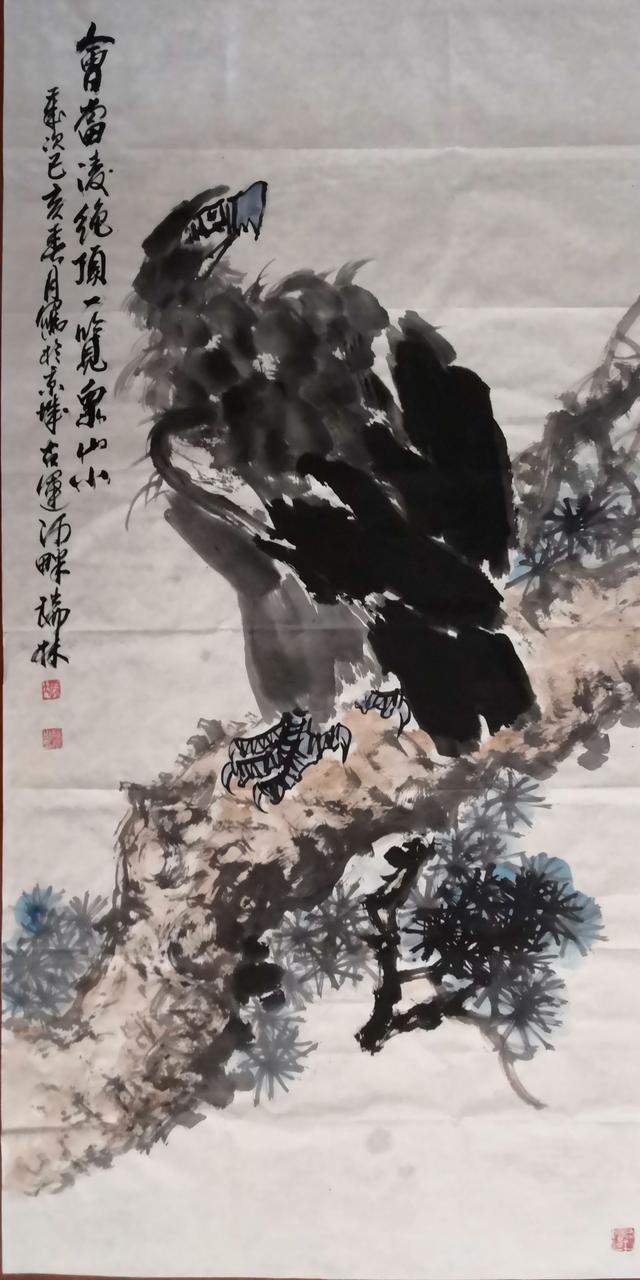 會當凌絕頂一覽眾山小
歲次己亥春月寫於京城古運河畔瑞林